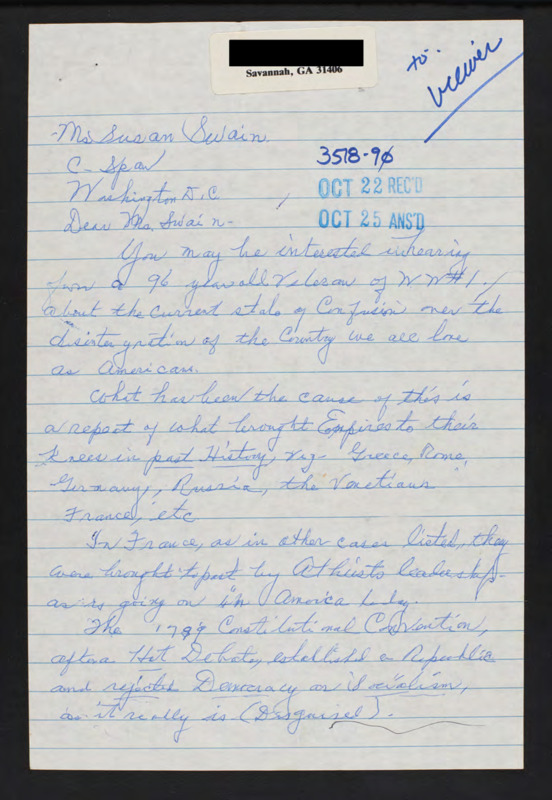 Savannah, GA 31406
to.
viewer
Ms Susan Swain
C-Span
Washington D.C.
3578-90
OCT 22 REC'D
OCT 25 ANS'D
Dear Ms. Swain-
You may be interested in hearing
from a 96 year old Veteran of WW#1.
about the current state of Confusion over the
disintegration of the Country we all love
as Americans.
What has been the cause of this is
a repeat of what brought Empires to their
Knees in past History, viz- Greece, Rome,
Germany, Russia, the Venetians
France, etc
In France, as in other cases listed, they
were brought to past by Atheists leadership-
as is going on in America today.
The 1789 Constitutional Convention,
after a Hot Debate, established a Republic
and rejected Democracy or Socialism,
as it really is (Disguised).